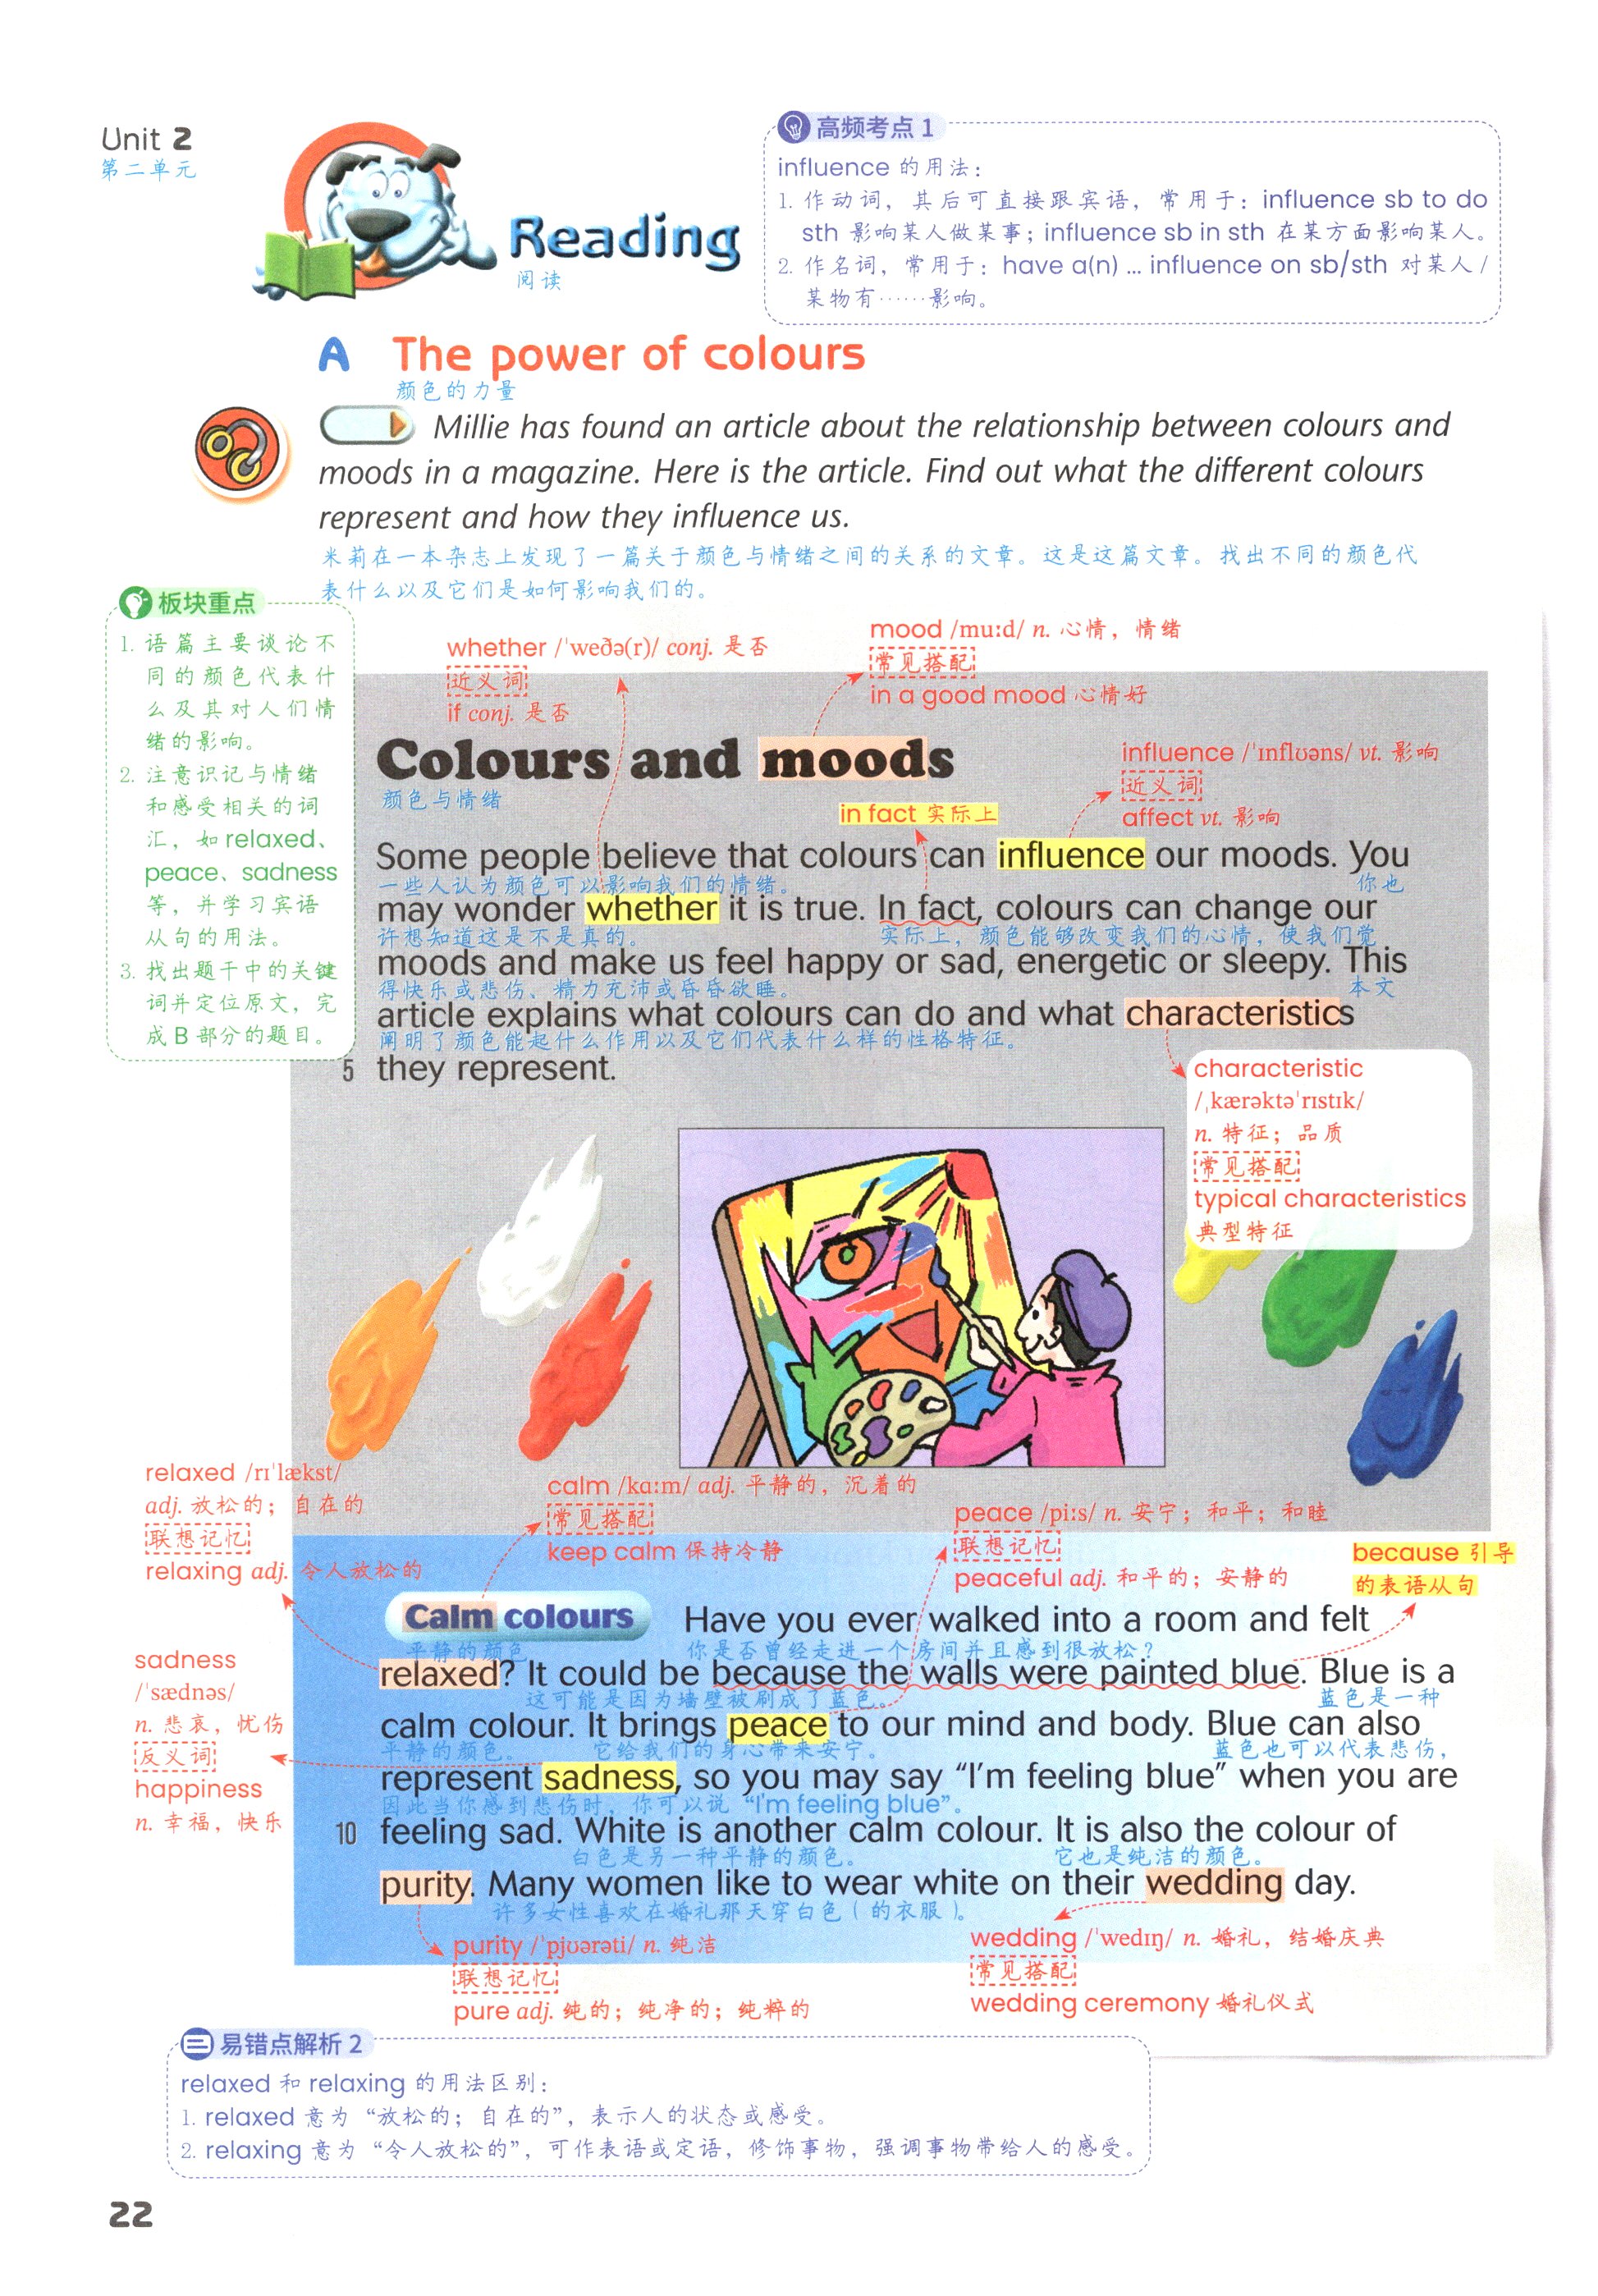 Unit 2
第二单元
Reading
阅读
高频考点 1
influence 的用法：
1. 作动词，其后可直接跟宾语，常用于：influence sb to do
sth 影响某人做某事；influence sb in sth 在某方面影响某人。
2. 作名词，常用于：have a(n) ... influence on sb/sth 对某人/
某物有……影响。
A The power of colours
颜色的力量
Millie has found an article about the relationship between colours and
moods in a magazine. Here is the article. Find out what the different colours
represent and how they influence us.
米莉在一本杂志上发现了一篇关于颜色与情绪之间的关系的文章。这是这篇文章。找出不同的颜色代
表什么以及它们是如何影响我们的。
板块重点
1. 语篇主要谈论不
同的颜色代表什
么及其对人们情
绪的影响。
2. 注意识记与情绪
和感受相关的词
汇，如 relaxed、
peace、sadness
等，并学习宾语
从句的用法。
3. 找出题干中的关键
词并定位原文，完
成 B 部分的题目。
whether /ˈweðə(r)/ conj. 是否
近义词
if conj. 是否
mood /muːd/ n. 心情，情绪
常见搭配
in a good mood 心情好
Colours and moods
颜色与情绪
influence /ˈɪnflʊəns/ vt. 影响
近义词
affect vt. 影响
in fact 实际上
Some people believe that colours can influence our moods. You
一些人认为颜色可以影响我们的情绪。 你也
may wonder whether it is true. In fact, colours can change our
许想知道这是不是真的。 实际上，颜色能够改变我们的心情，使我们觉
moods and make us feel happy or sad, energetic or sleepy. This
得快乐或悲伤、精力充沛或昏昏欲睡。 本文
article explains what colours can do and what characteristics
阐明了颜色能起什么作用以及它们代表什么样的性格特征。
5 they represent.
characteristic
/ˌkærəktəˈrɪstɪk/
n. 特征；品质
常见搭配
typical characteristics
典型特征
relaxed /rɪˈlækst/
adj. 放松的；自在的
联想记忆
relaxing adj. 令人放松的
calm /kɑːm/ adj. 平静的，沉着的
常见搭配
keep calm 保持冷静
peace /piːs/ n. 安宁；和平；和睦
联想记忆
peaceful adj. 和平的；安静的
because 引导
的表语从句
Calm colours Have you ever walked into a room and felt
平静的颜色 你是否曾经走进一个房间并且感到很放松？
relaxed? It could be because the walls were painted blue. Blue is a
这可能是因为墙壁被刷成了蓝色。 蓝色是一种
calm colour. It brings peace to our mind and body. Blue can also
平静的颜色。 它给我们的身心带来安宁。 蓝色也可以代表悲伤，
represent sadness, so you may say “I’m feeling blue” when you are
因此当你感到悲伤时，你可以说 “I'm feeling blue”。
10 feeling sad. White is another calm colour. It is also the colour of
白色是另一种平静的颜色。 它也是纯洁的颜色。
purity. Many women like to wear white on their wedding day.
许多女性喜欢在婚礼那天穿白色（的衣服）。
sadness
/ˈsædnəs/
n. 悲哀，忧伤
反义词
happiness
n. 幸福，快乐
purity /ˈpjʊərəti/ n. 纯洁
联想记忆
pure adj. 纯的；纯净的；纯粹的
wedding /ˈwedɪŋ/ n. 婚礼，结婚庆典
常见搭配
wedding ceremony 婚礼仪式
易错点解析 2
relaxed 和 relaxing 的用法区别：
1. relaxed 意为“放松的；自在的”，表示人的状态或感受。
2. relaxing 意为“令人放松的”，可作表语或定语，修饰事物，强调事物带给人的感受。
22